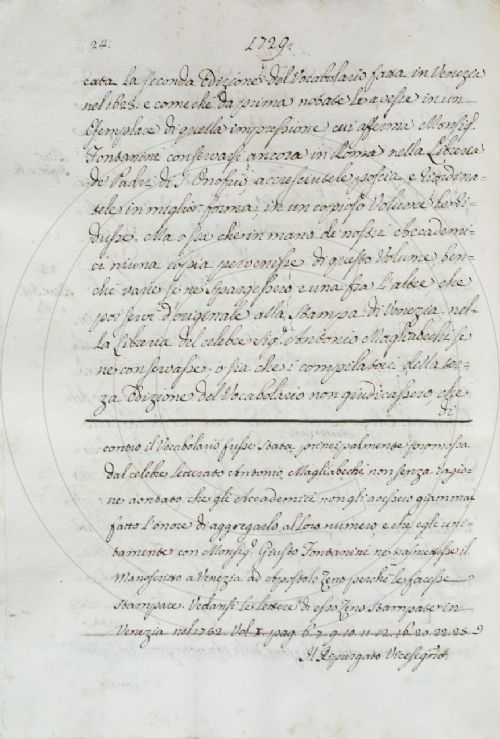 24. 1729.
cata la seconda Edizione del Vocabolario fatta in Venezia
nel 1623. e come che da prima notate le avesse in un
Esemplare di quella impressione cui afferma Monsig.r
Fontanini conservarsi ancora in Roma nella Libreria
de' Padri di S. Onofrio, accresciutele poscia, e riordina-
tele in miglior forma, in un copioso Volume le ri-
dusse. Ma o sia che in mano de' nostri Accademi-
ci niuna copia pervenisse di questo Volume ben-
chè varie se ne spargessero e una fra l'altre che
poi servì d'originale alla Stampa di Venezia nel-
la Libreria del celebre Sig.r Antonio Magliabechi si
ne conservasse o sia che i compilatori della ter-
za Edizione del Vocabolario non giudicassero, che
di
contro il Vocabolario fusse stata principalmente promossa
dal celebre Letterato Antonio Magliabechi non senza ragio-
ne adontato che gli Accademici non gli avessero giammai
fatto l'onore di aggregarlo al loro numero, e che egli uni-
tamente con Monsig.r Giusto Fontanini ne trasmettesse il
Manoscritto a Venezia ad Apostolo Zeno perchè le facesse
stampare. Vedansi le Lettere di esso Zeno stampate in
Venezia nel 1752 Vol. I. pag. 6. 7. 9. 10. 11. 12. 16. 20. 22. 25. 9
Il Ripurgato Vicesegrio.